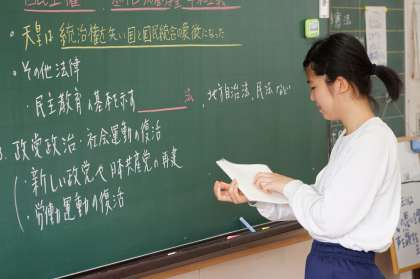 ・天皇は統治権を失い国と国民統合の象徴になった
・その他法律
・民主教育の基本を示す＿＿＿＿法、地方自治法、民法など
3. 政党政治・社会運動の復活
・新しい政党や日本共産党の再建
・労働運動の復活